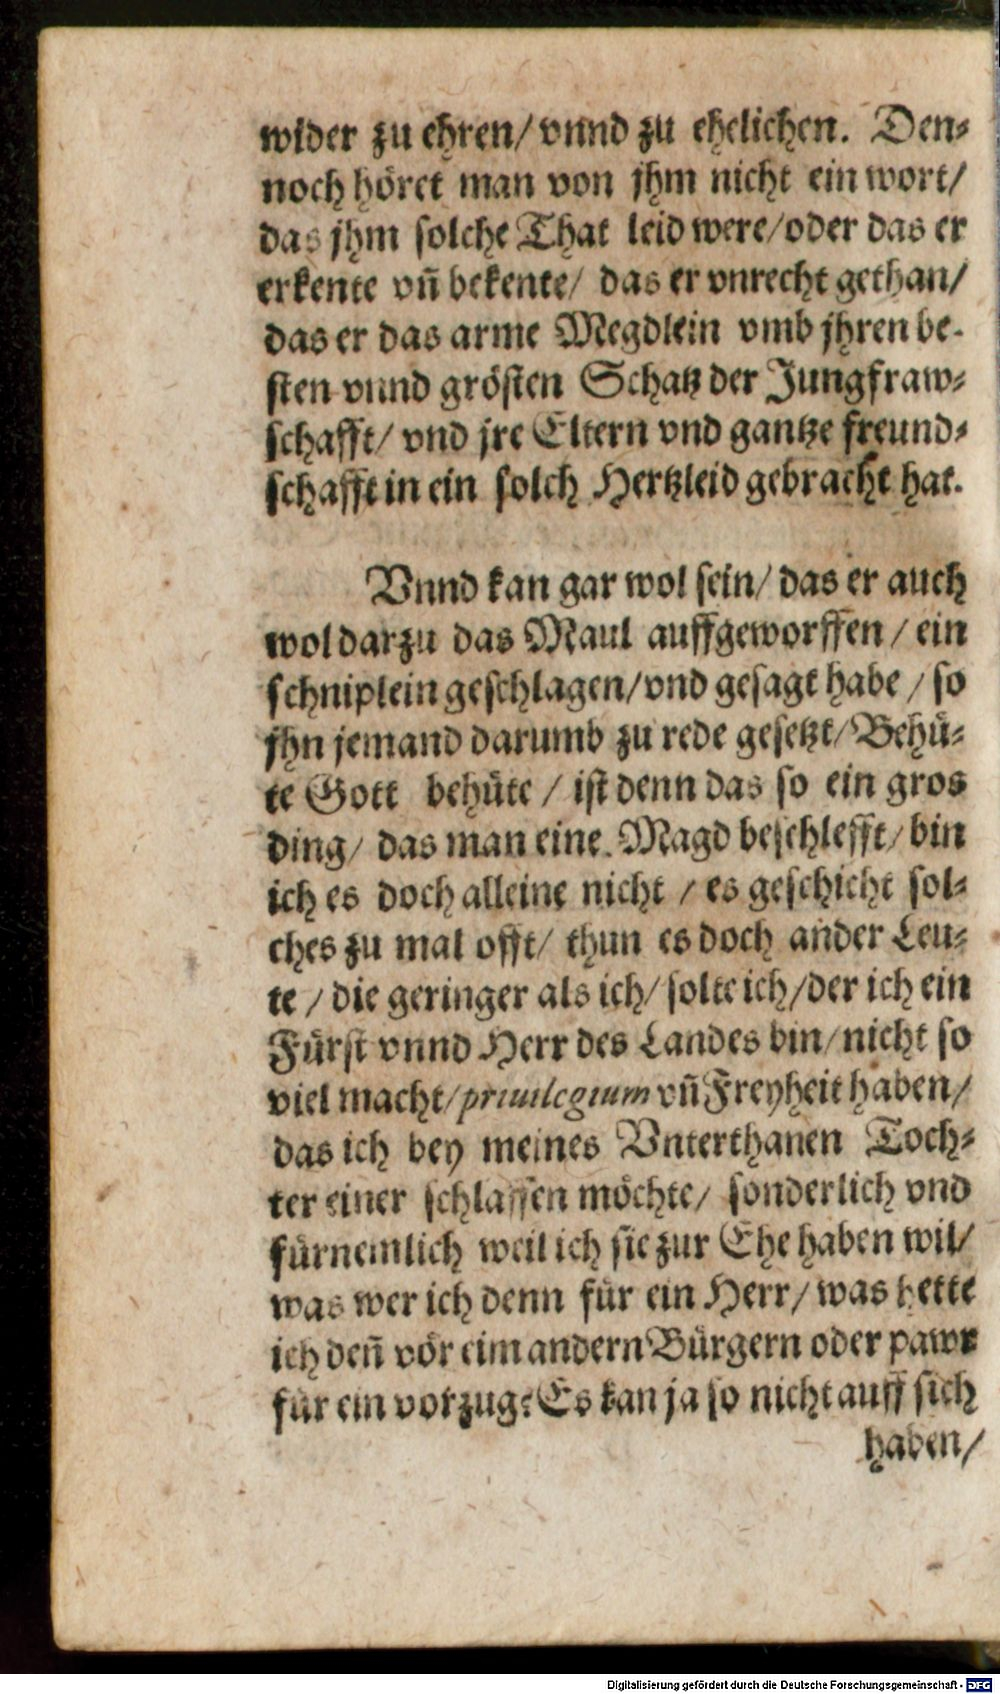 wider zu ehren/ vnnd zu ehelichen. Den-
noch höret man von jhm nicht ein wort/
das jhm solche That leid were/oder das er
erkente vñ bekente/ das er vnrecht gethan/
das er das arme Megdlein vmb jhren be-
sten vnnd grösten Schatz der Jungfraw-
schafft/ vnd jre Eltern vnd gantze freund-
schafft in ein solch Hertzleid gebracht hat.
Vnnd kan gar wol sein/ das er auch
wol darzu das Maul auffgeworffen / ein
schniplein geschlagen/vnd gesagt habe / so
jhn jemand darumb zu rede gesetzt/ Behü-
te Gott behüte / ist denn das so ein gros
ding/ das man eine Magd beschlefft/ bin
ich es doch alleine nicht / es geschicht sol-
ches zu mal offt/ thun es doch ander Leu-
te / die geringer als ich/ solte ich/der ich ein
Fürst vnnd Herr des Landes bin/ nicht so
viel macht/ priuilegium vñ Freyheit haben/
das ich bey meines Vnterthanen Toch-
ter einer schlaffen möchte/ sonderlich vnd
fürnemlich weil ich sie zur Ehe haben wil/
was wer ich denn für ein Herr/ was hette
ich deñ vör eim andern Bürgern oder pawr
für ein vorzug? Es kan ja so nicht auff sich
haben/
Digitalisierung gefördert durch die Deutsche Forschungsgemeinschaft - DFG